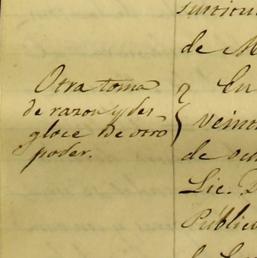 Otra toma
de razon y des
gloce de otro
poder.
de M
En
veint
de
Lic.
Públic